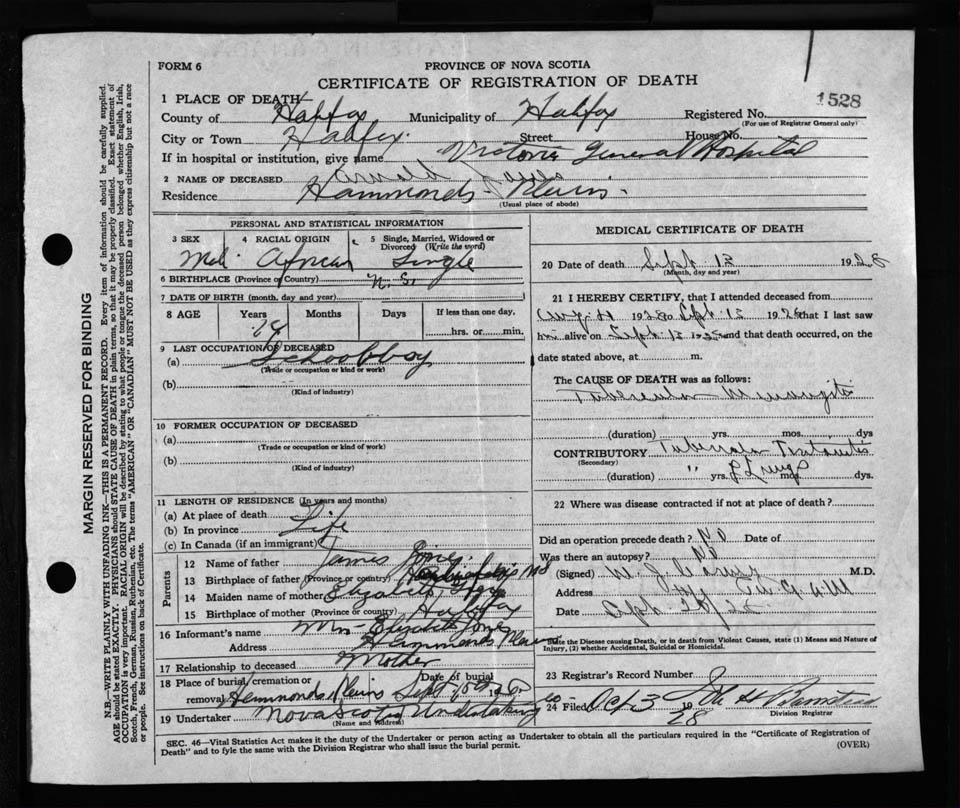 FORM 6
PROVINCE OF NOVA SCOTIA
CERTIFICATE OF REGISTRATION OF DEATH
1528
1 PLACE OF DEATH
County of Halifax Municipality of Halifax Registered No.
(For use of Registrar General only)
City or Town Halifax Street House No.
If in hospital or institution, give name Victoria General Hospital
2 NAME OF DECEASED Arnold Jones
Residence Hammonds Plains
(Usual place of abode)
PERSONAL AND STATISTICAL INFORMATION
3 SEX 4 RACIAL ORIGIN 5 Single, Married, Widowed or Divorced (Write the word)
African Single
6 BIRTHPLACE (Province or Country) N. S.
7 DATE OF BIRTH (month, day and year)
8 AGE Years Months Days If less than one day,
hrs. or min.
9 LAST OCCUPATION OF DECEASED
(a) Schoolboy
(Trade or occupation or kind of work)
(b)
(Kind of industry)
10 FORMER OCCUPATION OF DECEASED
(a)
(Trade or occupation or kind of work)
(b)
(Kind of industry)
11 LENGTH OF RESIDENCE (In years and months)
(a) At place of death
(b) In province Life
(c) In Canada (if an immigrant)
Parents
12 Name of father James Jones
13 Birthplace of father (Province or country)
14 Maiden name of mother Elizabeth
15 Birthplace of mother (Province or country) Halifax
16 Informant's name Mrs Elizabeth Jones
Address Hammonds Plains
17 Relationship to deceased Mother
18 Place of burial, cremation or Date of burial
removal Hammonds Plains Sept 15th 1928
19 Undertaker Nova Scotia Undertaking
(Name and Address)
MEDICAL CERTIFICATE OF DEATH
20 Date of death Sept 13 1928
(Month, day and year)
21 I HEREBY CERTIFY, that I attended deceased from
Aug. 1928 to Sept 13 1928 that I last saw
him alive on Sept 13 1928 and that death occurred, on the
date stated above, at m.
The CAUSE OF DEATH was as follows:
Tubercular Meningitis
(duration) yrs. mos. dys
CONTRIBUTORY Tubercular
(Secondary)
(duration) " yrs. of Lungs mos. dys.
22 Where disease contracted if not at place of death?
Did an operation precede death? No Date of
Was there an autopsy? No
(Signed) M.D.
Address
Date Sept
State the Disease causing Death, or in death from Violent Causes, state (1) Means and Nature of Injury, (2) whether Accidental, Suicidal or Homicidal.
23 Registrar's Record Number
24 Filed Oct 3 1928
Division Registrar
SEC. 46—Vital Statistics Act makes it the duty of the Undertaker or person acting as Undertaker to obtain all the particulars required in the "Certificate of Registration of
Death" and to fyle the same with the Division Registrar who shall issue the burial permit.
(OVER)
MARGIN RESERVED FOR BINDING
N.B.—WRITE PLAINLY WITH UNFADING INK—THIS IS A PERMANENT RECORD. Every item of information should be carefully supplied.
AGE should be stated EXACTLY. PHYSICIANS should STATE CAUSE OF DEATH in plain terms, so that it may be properly classified. Exact statement of
OCCUPATION is very important. RACIAL ORIGIN will be described by stating to what people or tongue the deceased person belonged whether English, Irish,
Scotch, French, German, Russian, Ruthenian, etc. The terms "AMERICAN" OR "CANADIAN" MUST NOT BE USED as they express citizenship but not a race
or people. See instructions on back of Certificate.